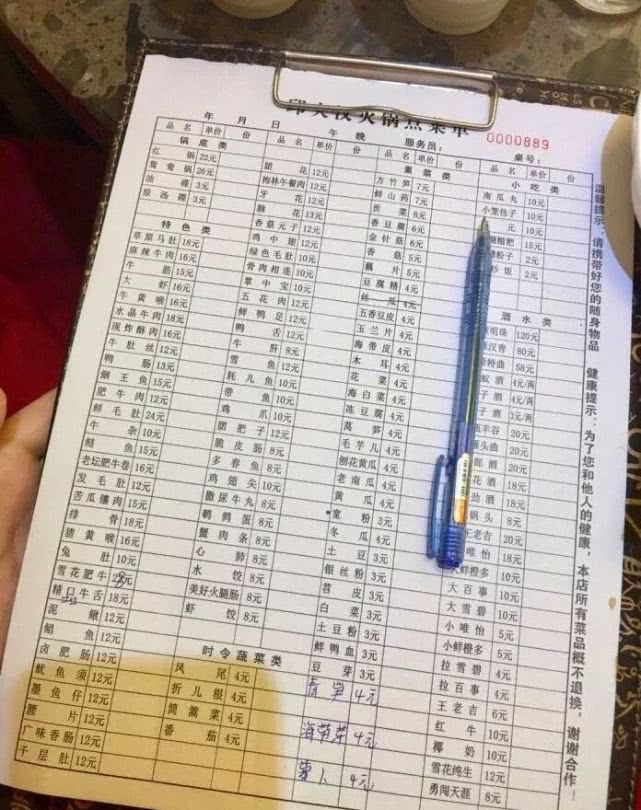 火锅点菜单
0000889
年 月 日 午 晚 服务员: 桌号:
品名 单价 份
锅底类
红锅 22元
鸳鸯锅 26元
油碟 3元
原汤碟 3元
特色类
草原马肚 18元
麻辣牛肉 16元
牛筋 15元
大虾 16元
牛黄喉 16元
水晶牛肉 18元
现炸酥肉 16元
牛肚丝 12元
鸭肠 13元
鮰王鱼 15元
肥牛肉 12元
鲜毛肚 24元
牛杂 10元
鲢鱼 15元
老坛肥牛卷 16元
发毛肚 12元
苦瓜镶肉 15元
排骨 18元
猪黄喉 16元
兔肚 10元
雪花肥牛
精品牛舌 18元
泥鳅 12元
鲳鱼 12元
卤肥肠 12元
鱿鱼须 12元
墨鱼仔 12元
腰片 12元
广味香肠 12元
千层肚 12元
品名 单价 份
腰花 12元
梅林午餐肉 12元
牙花 12元
脑花 13元
香菇元子 12元
鸡中翅 12元
绿色毛肚 10元
骨肉相连 10元
掌中宝 10元
五花肉 12元
鲜鸭足 12元
鸭舌 12元
牛肝 8元
雪鱼 12元
耗儿鱼 10元
带鱼 10元
鸡爪 10元
腊把子 12元
脆皮肠 8元
多春鱼 8元
鸡翅尖 10元
撒尿牛丸 8元
鹌鹑蛋 8元
蟹肉条 8元
心肺 8元
水饺 8元
美好火腿肠 8元
虾饺 8元
时令蔬菜类
凤尾 4元
折儿根 4元
筒蒿菜 4元
番茄 4元
素菜类
品名 单价 份
方竹笋 7元
鲜山药 7元
贡菜 8元
香豆腐 6元
金针菇 6元
香菇 5元
藕片 5元
豆腐精 4元
丝瓜 4元
五香豆皮 4元
玉兰片 4元
海带皮 4元
木耳 4元
花菜 4元
海白菜 4元
冻豆腐 4元
莴笋 4元
毛芋儿 4元
刨花黄瓜 4元
老南瓜 4元
黄瓜 4元
宽粉 3元
冬瓜 4元
土豆 3元
银丝粉 3元
苕皮 3元
白菜 3元
土豆粉 3元
鲜鸭血 3元
豆芽 3元
青笋 4元
海草芽 4元
萝卜 4元
小吃类
品名 单价 份
南瓜丸 10元
小笼包子 10元
元 10元
糍粑 15元
粉子 2元
炒饭 2元
酒水类
明珠 120元
汉青 80元
特曲 58元
酒 4元/两
子酒 4元/两
子酒 3元/两
丰谷 20元
头曲 20元
郎酒 20元
花酒 18元
劲酒 18元
锅头 8元
老吉 20元
唯怡 18元
大鲜橙多 10元
大百事 10元
大雪碧 10元
小唯怡 5元
小鲜橙多 5元
拉雪碧 4元
拉百事 4元
王老吉 6元
红牛 10元
椰奶 10元
雪花纯生 12元
勇闯天涯 8元
温馨提示:请携带好您的随身物品 健康提示:为了您和他人的健康,本店所有菜品概不退换,谢谢合作!